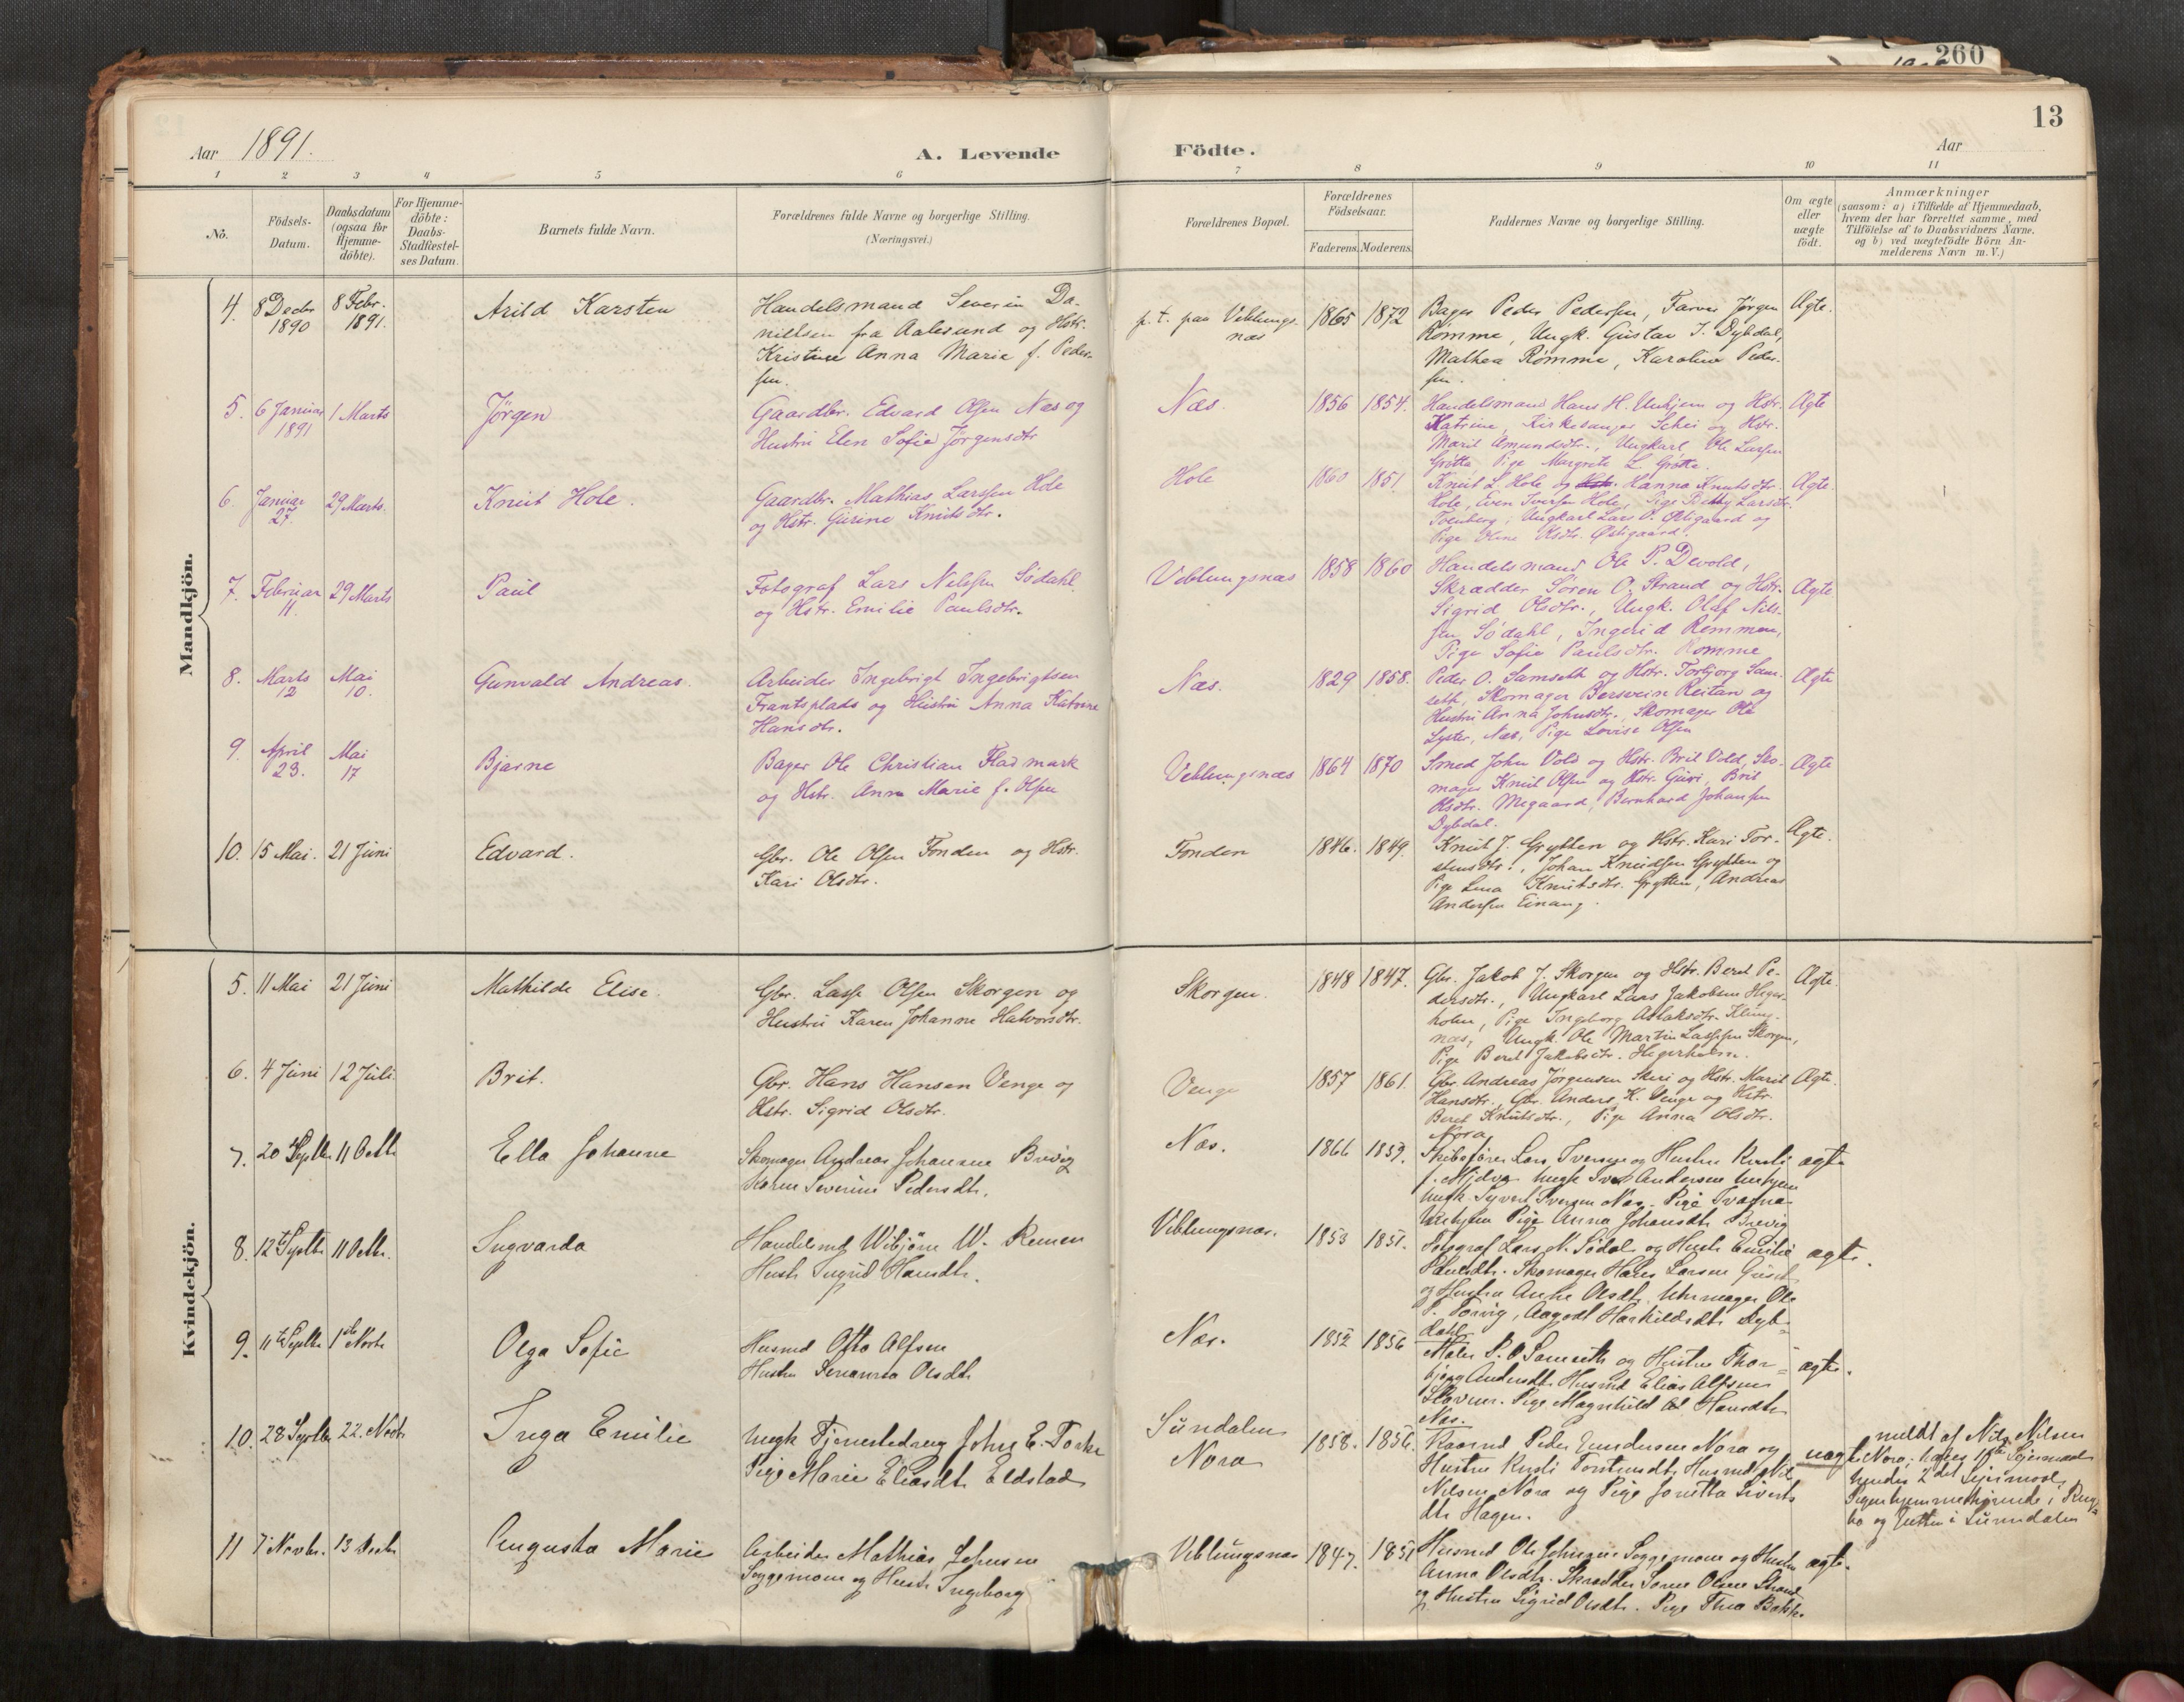 260
13
Aar 1891.
A. Levende Födte.
Aar
1 2 3 4 5 6 7 8 9 10 11
No.
Födsels-Datum.
Daabsdatum (ogsaa for Hjemme-döbte).
For Hjemme-döbte: Daabs-Stadfæstel-ses Datum.
Barnets fulde Navn.
Forældrenes fulde Navne og borgerlige Stilling.
(Næringsvei.)
Forældrenes Bopæl.
Forældrenes Födselsaar.
Faderens. Moderens.
Faddernes Navne og borgerlige Stilling.
Om ægte eller uægte födt.
Anmærkninger
(saasom: a) i Tilfælde af Hjemmedaab,
hvem der har forrettet samme, med
Tilföielse af to Daabsvidners Navne,
og b) ved uægtefödte Börn An-
melderens Navn m. V.)
Mandkjön.
4. 8 Decbr 1890 8 Febr. 1891. Arild Karsten
Handelsmand Severin Da-
nielsen fra Aalesund og Hstr.
Kristine Anna Marie f. Peder-
sen.
p. t. paa Veblungs-
næs
1865 1872
Bager Peder Pedersen, Farver Jørgen
Rømme, Ungk. Gustav J. Dybdal,
Mathea Rømme, Karoline Peder-
sen.
Ægte.
5. 6 Januar 1891 1 Marts Jörgen
Gaardbr. Edvard Olsen Næs og
Hustru Elen Sofie Jørgensdtr
Næs. 1856 1854.
Handelsmand Hans H. Unhjem og Hstr.
Katrine, Kirkesanger Schei og Hstr.
Marit Amundsdtr., Ungkarl Ole Larsen
Grøtte, Pige Margrete L. Grøtte.
Ægte
6. Januar 27. 29 Marts. Knut Hole.
Gaardbr. Mathias Larssen Hole
og Hstr. Gurine Knutsdtr.
Hole 1860 1851.
Knut L. Hole og Hanna Knutsdtr.
Hole, Even Iversen Hole, Pige Betty Larsdtr.
Ungkarl Lars O. Østigaard og
Pige Olsdtr. Østigaard.
Ægte.
7. Februar 11 29 Marts Paul
Fotograf Lars Nilssen Södahl
og Hstr. Emilie Paulsdtr.
Veblungsnæs 1858 1860
Handelsmand Ole P. Devold,
Skrædder Sören O. Strand og Hstr.
Sigrid Olsdtr., Ungk. Olaf Nils-
sen Södahl, Ingerid Remmen,
Pige Sofie Paulsdtr. Romme
Ægte
8. Marts 12 Mai 10. Gunvald Andreas.
Arbeider Ingebrigt Ingebrigtsen
Frantsplads og Hustru Anna Katrine
Hansdtr.
Næs. 1829 1858.
Peder O. Samseth og Hstr. Torbjørg Sam-
seth, Skomager Bersvein Reitan og
Hustru Anna Johnsdtr., Skomager Ole
Lyster, Næs, Pige Lovise Olsen
Ægte
9. April 23. Mai 17 Bjarne
Bager Ole Christian Fladmark
og Hstr. Anna Marie f. Olsen
Veblungsnæs 1864 1870
Smed John Vold og Hstr. Brit Vold, Sko-
mager Knut Olsen og Hstr. Guri, Brit
Olsdtr. Megaard, Bernhard Johansen
Dybdal.
Ægte
10. 15 Mai. 21 Juni Edvard.
Gbr. Ole Olsen Fonden og Hstr.
Kari Olsdtr.
Fonden 1846. 1849.
Knut J. Grytten og Hstr. Kari Tor-
stensdtr., Johan Knudsen Grytten og
Pige Lina Knutsdtr. Grytten, Andreas
Andersen Einang.
Ægte.
Kvindekjön.
5. 11 Mai 21 Juni Mathilde Elise.
Gbr. Lasse Olsen Skorgen og
Hustru Karen Johanne Halvorsdtr.
Skorgen. 1848 1847.
Gbr. Jakob J. Skorgen og Hstr. Beret Pe-
dersdtr., Ungkarl Lars Jakobsen Heger-
holm, Pige Ingeborg Aslaksdtr. Kling-
næs, Ungk. Ole Martin Lassesen Skorgen,
Pige Beret Jakobsdtr. Hegerholm.
Ægte.
6. 4 Juni 12 Juli. Brit.
Gbr. Hans Hansen Venge og
Hstr. Sigrid Olsdtr.
Venge 1857 1861.
Gbr. Andreas Jørgensen Skeri og Hstr. Marit
Hansdtr., Gbr. Anders K. Venge og Hstr.
Beret Knutsdtr., Pige Anna Olsdtr.
Nora
Ægte.
7. 20 Septbr 11 Octb Ella Johanne
Skomager Andreas Johansen Brevig
Karen Severine Pedersdtr.
Næs. 1866 1859.
Skibsfører Lars Iversen og Hustru Kirsti
Ungk Andersen Unhjem
Ungk. Syvert Iversen Næs. Pige
Unhjem Pige Anna Johansdtr Brevig
ægte
8. 12te Septbr 11 Octbr. Ingvarda
Handelsmd Wibjörn W. Remen
Hustr Ingrid Hansdtr.
Veblungsnæs. 1853 1851.
Fotograf Lars N. Sødal og Hustr Emilie
Paulsdtr. Skomager Hans Larsen
og Hustru Olsdtr. Uhrmager Ole
P. Torvig, Dyb-
dahl
ægte.
9. 11te Septbr 1ste Novbr Olga Sofie
Husmd Otto Alfsen
Hustru Olsdtr
Næs. 1852 1856
Maler P. O Samseth og Hustru Thor-
bjørg Andersdtr Husmd Elias Alfsen
Pige Magnhild Hansdtr
Næs.
ægte.
10. 28 Septbr 22. Novbr Inga Emilie
Ungk Tjenestedreng John E. Torke
Pige Marie Eliasdtr Eldstad
Sundalen
Nora
1858. 1856.
Peder Gundersen Nora og
Hustru Kirsti Husmd Nils
Nilsen Nora og Pige Jonetta Siverts
dtr Hagen.
uægte
meldt af Nils Nilsen
Nora; hans 1ste Leiermaal
hendes 2det Leiermaal,
Pigen hjemmehørende i
bo og i Sunndalen
11 7 Novbr. 13 Decbr Augusta Marie
Arbeider Mathias Johnsen
Soggemoen og Hustr Ingeborg
Veblungsnæs 1847. 1851
Husmd Ole Johnsen Soggemoen og Hustru
Anna Olsdtr. Skrædder Søren Olsen Strand
og Hustru Sigrid Olsdtr. Pige Thea
ægte.